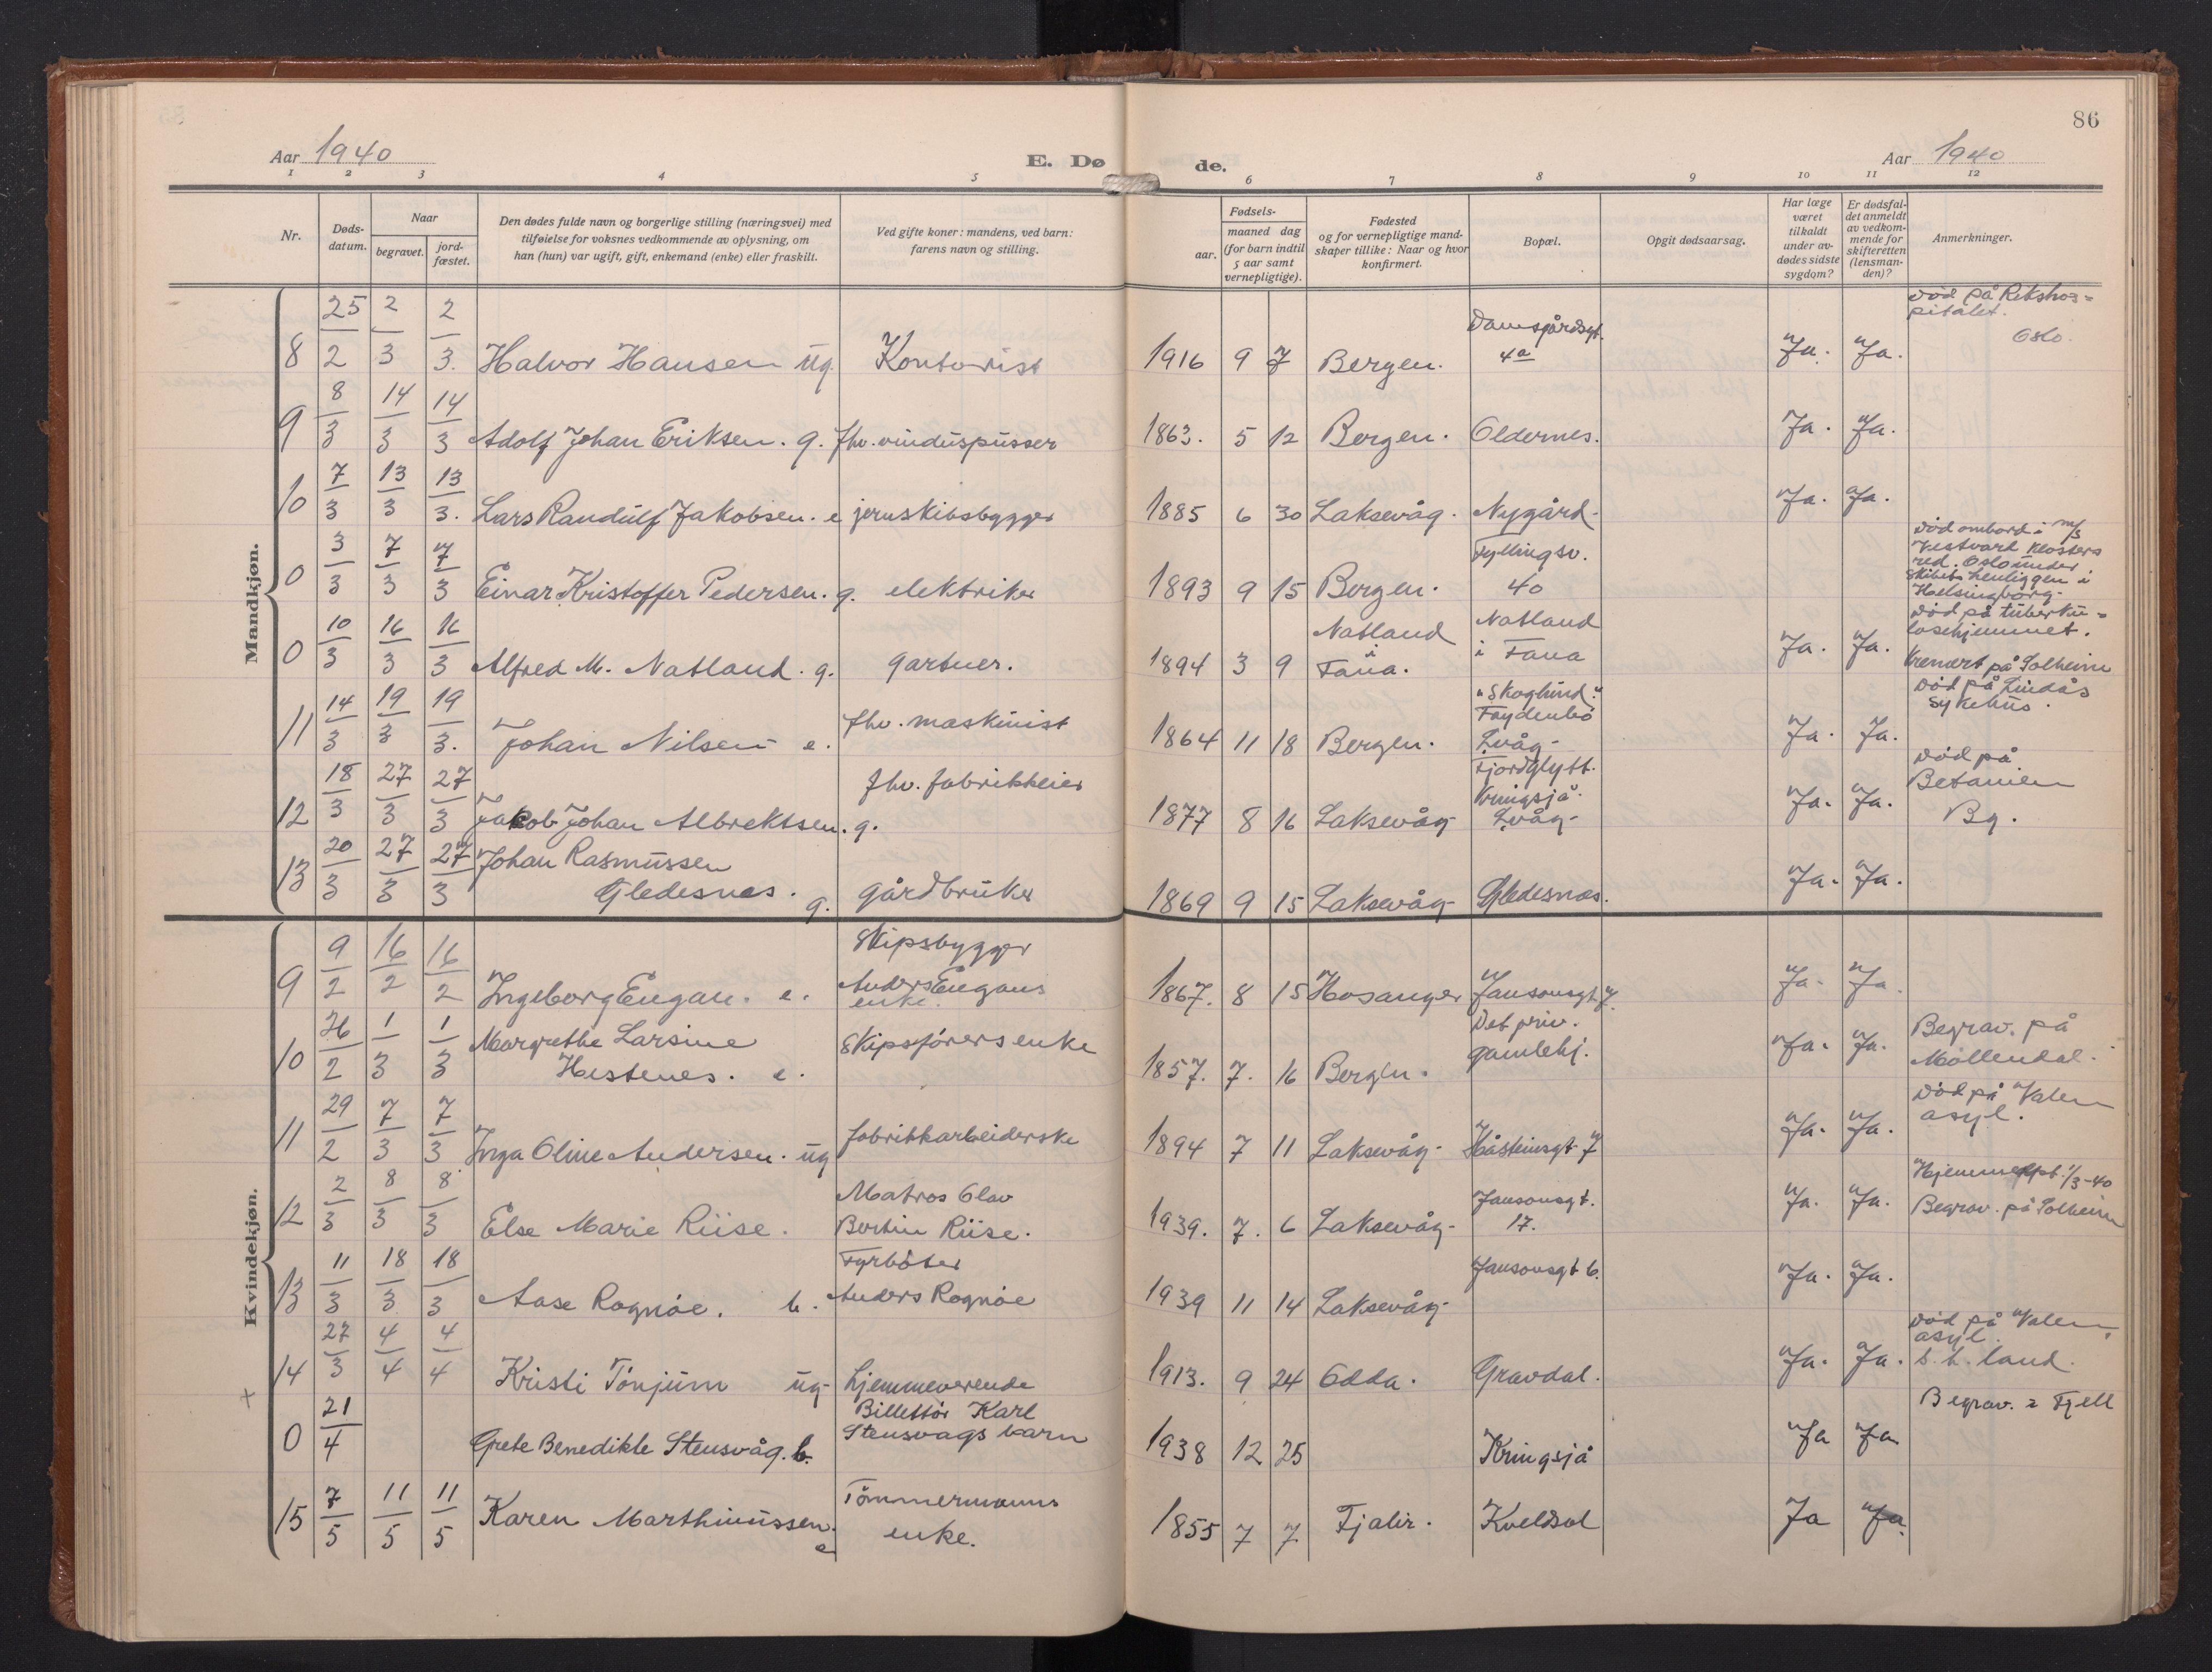 86
Aar 1940
E. Dø
de.
Aar 1940
1 2 3 4 5 6 7 8 9 10 11 12
Nr.
Døds-
datum.
Naar
begravet.
jord-
fæstet.
Den dødes fulde navn og borgerlige stilling (næringsvei) med
tilføielse for voksnes vedkommende av oplysning, om
han (hun) var ugift, gift, enkemand (enke) eller fraskilt.
Ved gifte koner: mandens, ved barn:
farens navn og stilling.
Fødsels-
aar.
maaned dag
(for barn indtil
5 aar samt
vernepligtige).
Fødested
og for vernepligtige mand-
skaper tillike: Naar og hvor
konfirmert.
Bopæl.
Opgit dødsaarsag.
Har læge
været
tilkaldt
under av-
dødes sidste
sygdom?
Er dødsfal-
det anmeldt
av vedkom-
mende for
skifteretten
(lensman-
den)?
Anmerkninger.
Mandkjøn.
8 25/2 2/3 2/3. Halvor Hansen ug. Kontorist 1916 9 7 Bergen. Damsgårdsgt.
4a Ja. Ja. Död på Rikshos=
pitalet.
Oslo.
9 8/3 14/3 14/3 Adolf Johan Eriksen. g. fhv. vinduspusser 1863. 5 12 Bergen. Oldernes. Ja. Ja.
10 7/3 13/3 13/3. Lars Randulf Jakobsen. e jernskibsbygger 1885 6 30 Laksevåg. Nygård. Ja. Ja.
0 3/3 7/3 7/3 Einar Kristoffer Pedersen. g. elektriker 1893 9 15 Bergen. Fyllingsv.
40
Död ombord i m/s
Vestvard Klosters
red. Oslo under
skibets henliggen i
Helsingborg.
0 10/3 16/3 16/3 Alfred M. Natland. g. gartner. 1894 3 9 Natland
i
Fana. Natland
i Fana Ja. Ja. Död på tüberku=
losehjemmet.
Kremert på Solheim
11 14/3 19/3 19/3. Johan Nilsen e. fhv. maskinist 1864 11 18 Bergen. "Skoglund"
Frydenbö
Lvåg. Ja. Ja. Död på Lindås
sykehus.
12 18/3 27/3 27/3 Jakob Johan Albrektsen. g. fhv. fabrikkeier 1877 8 16 Laksevåg Fjordglytt.
Kringsjå.
Lvåg. Ja. Ja. Död på
Betanien
Bg.
13 20/3 27/3 27/3 Johan Rasmussen
Gledesnes. g. gårdbruker 1869 9 15 Laksevåg Gledesnes. Ja. Ja.
Kvindekjøn.
9 9/2 16/2 16/2 Ingeborg Engan. e. Skipsbygger
Anders Engans
enke. 1867. 8 15 Hosanger Jansonsgt 7. Ja. Ja.
10 26/2 1/3 1/3 Margrethe Larsine
Hestenes. e. Skipsförers enke 1857. 7. 16 Bergen. Det priv.
gamlehj. Ja. Ja. Begrav. på
Möllendal.
11 29/2 7/3 7/3 Inga Oline Andersen. ug fabrikkarbeiderske 1894 7 11 Laksevåg. Håsteinsgt 7 Ja. Ja. Död på Valen
asyl.
12 2/3 8/3 8/3 Else Marie Riise. Matros Olav
Bertin Riise. 1939. 7. 6 Laksevåg. Jansonsgt.
17. Ja. Ja. Hjemmedpt. 1/3-40
Begrav. på Solheim
13 11/3 18/3 18/3 Aase Rognöe. b. Fyrböter
Anders Rognöe 1939 11 14 Laksevåg. Jansonsgt 6. Ja. Ja.
14 27/3 4/4 4/4 Kristi Tönjum ug. hjemmeverende 1913. 9 24 Odda. Gravdal. Ja. Ja. Död på Valen
asyl.
S. H. land.
+
0 21/4 Grete Benedikte Stensvåg. b. Billettör Karl
Stensvags barn 1938 12 25 Kringsjå Ja Ja Begrav. i Fjell
15 7/5 11/5 11/5 Karen Marthinussen. e Tömmermanns
enke. 1855 7 7 Fjalir. Kveldsol Ja Ja.